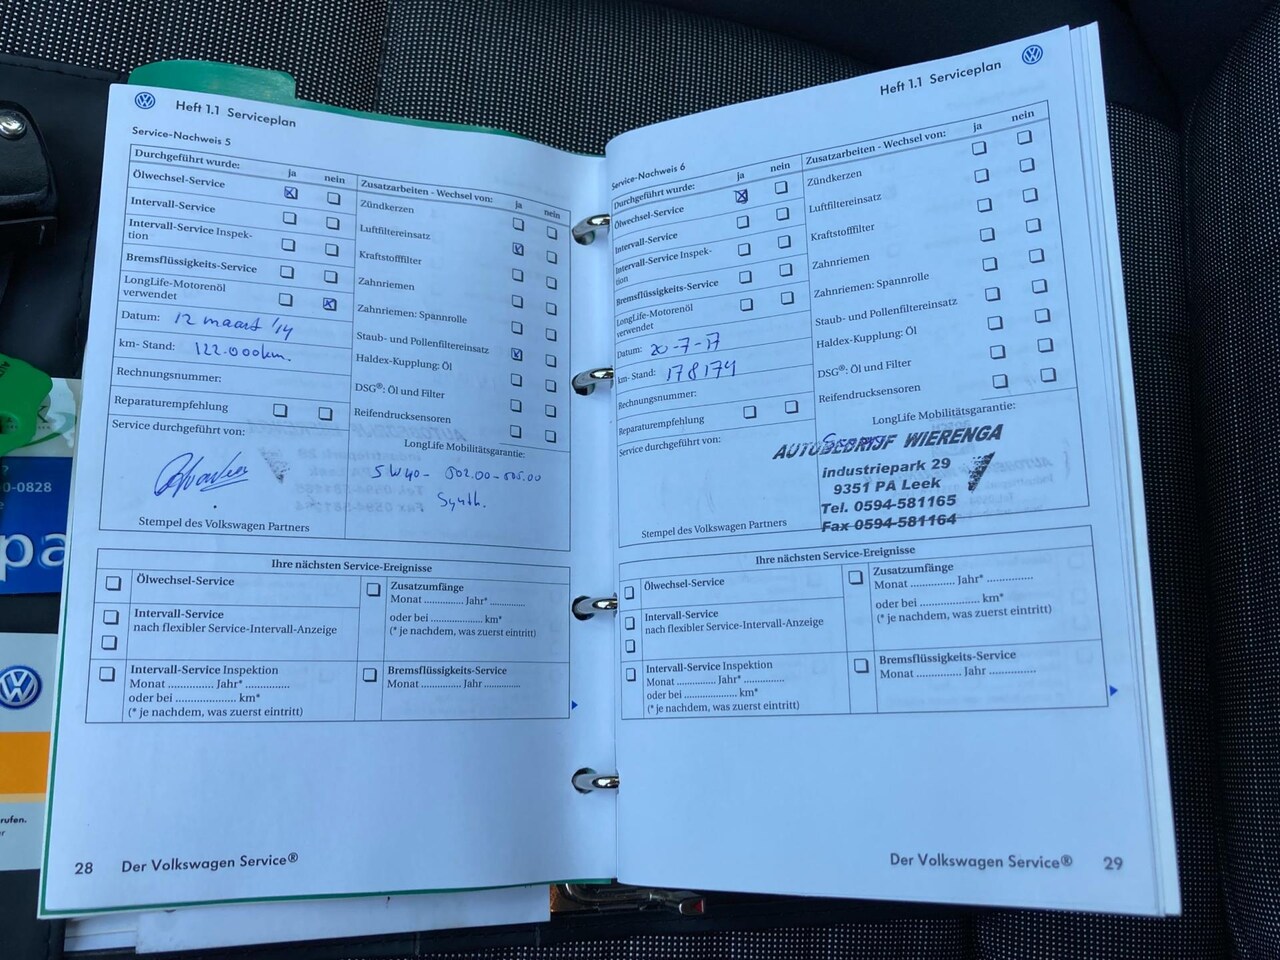 Heft 1.1 Serviceplan
Service-Nachweis 5
Durchgeführt wurde:
ja nein
Ölwechsel-Service
Intervall-Service
Intervall-Service Inspek-
tion
Bremsflüssigkeits-Service
LongLife-Motorenöl
verwendet
Datum: 12 maart '14
km- Stand: 122.000km.
Rechnungsnummer:
Reparaturempfehlung
Service durchgeführt von:
Stempel des Volkswagen Partners
Zusatzarbeiten - Wechsel von:
ja nein
Zündkerzen
Luftfiltereinsatz
Kraftstofffilter
Zahnriemen
Zahnriemen: Spannrolle
Staub- und Pollenfiltereinsatz
Haldex-Kupplung: Öl
DSG®: Öl und Filter
Reifendrucksensoren
LongLife Mobilitätsgarantie:
5W40- 502.00-505.00
Synth.
Ihre nächsten Service-Ereignisse
Ölwechsel-Service
Intervall-Service
nach flexibler Service-Intervall-Anzeige
Intervall-Service Inspektion
Monat ............... Jahr* ...............
oder bei ..................... km*
(* je nachdem, was zuerst eintritt)
Zusatzumfänge
Monat ............. Jahr* .............
oder bei .................... km*
(* je nachdem, was zuerst eintritt)
Bremsflüssigkeits-Service
Monat ............. Jahr .............
28 Der Volkswagen Service®
Heft 1.1 Serviceplan
Service-Nachweis 6
Durchgeführt wurde:
ja nein
Ölwechsel-Service
Intervall-Service
Intervall-Service Inspek-
tion
Bremsflüssigkeits-Service
LongLife-Motorenöl
verwendet
Datum: 20-7-17
km- Stand: 178174
Rechnungsnummer:
Reparaturempfehlung
Service durchgeführt von:
Stempel des Volkswagen Partners
Zusatzarbeiten - Wechsel von:
ja nein
Zündkerzen
Luftfiltereinsatz
Kraftstofffilter
Zahnriemen
Zahnriemen: Spannrolle
Staub- und Pollenfiltereinsatz
Haldex-Kupplung: Öl
DSG®: Öl und Filter
Reifendrucksensoren
LongLife Mobilitätsgarantie:
AUTOBEDRIJF WIERENGA
industriepark 29
9351 PA Leek
Tel. 0594-581165
Fax 0594-581164
Ihre nächsten Service-Ereignisse
Ölwechsel-Service
Intervall-Service
nach flexibler Service-Intervall-Anzeige
Intervall-Service Inspektion
Monat ............... Jahr* ...............
oder bei ..................... km*
(* je nachdem, was zuerst eintritt)
Zusatzumfänge
Monat ............. Jahr* .............
oder bei .................... km*
(* je nachdem, was zuerst eintritt)
Bremsflüssigkeits-Service
Monat ............. Jahr .............
Der Volkswagen Service® 29
0-0828
pa
rufen.